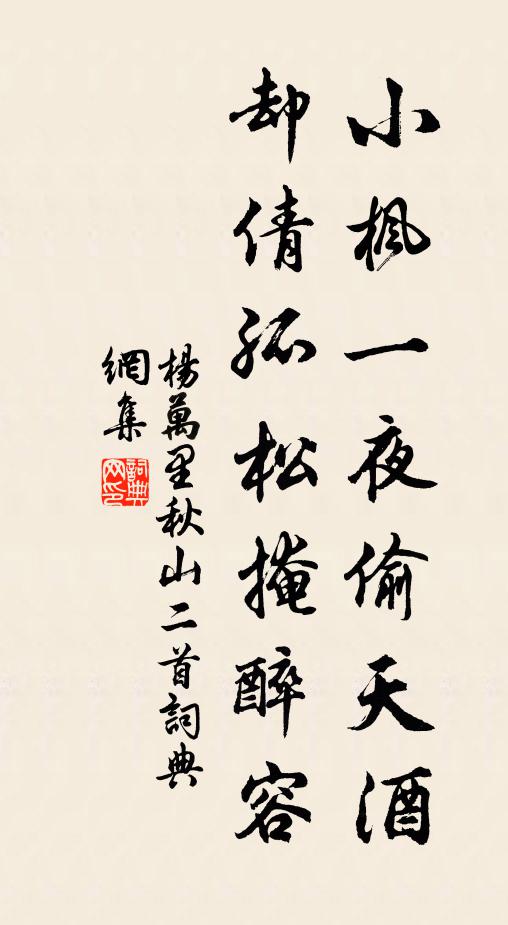 小楓一夜偷天酒
却倩孤松掩醉容
楊萬里秋山二首詞典
網集
詞典
网印